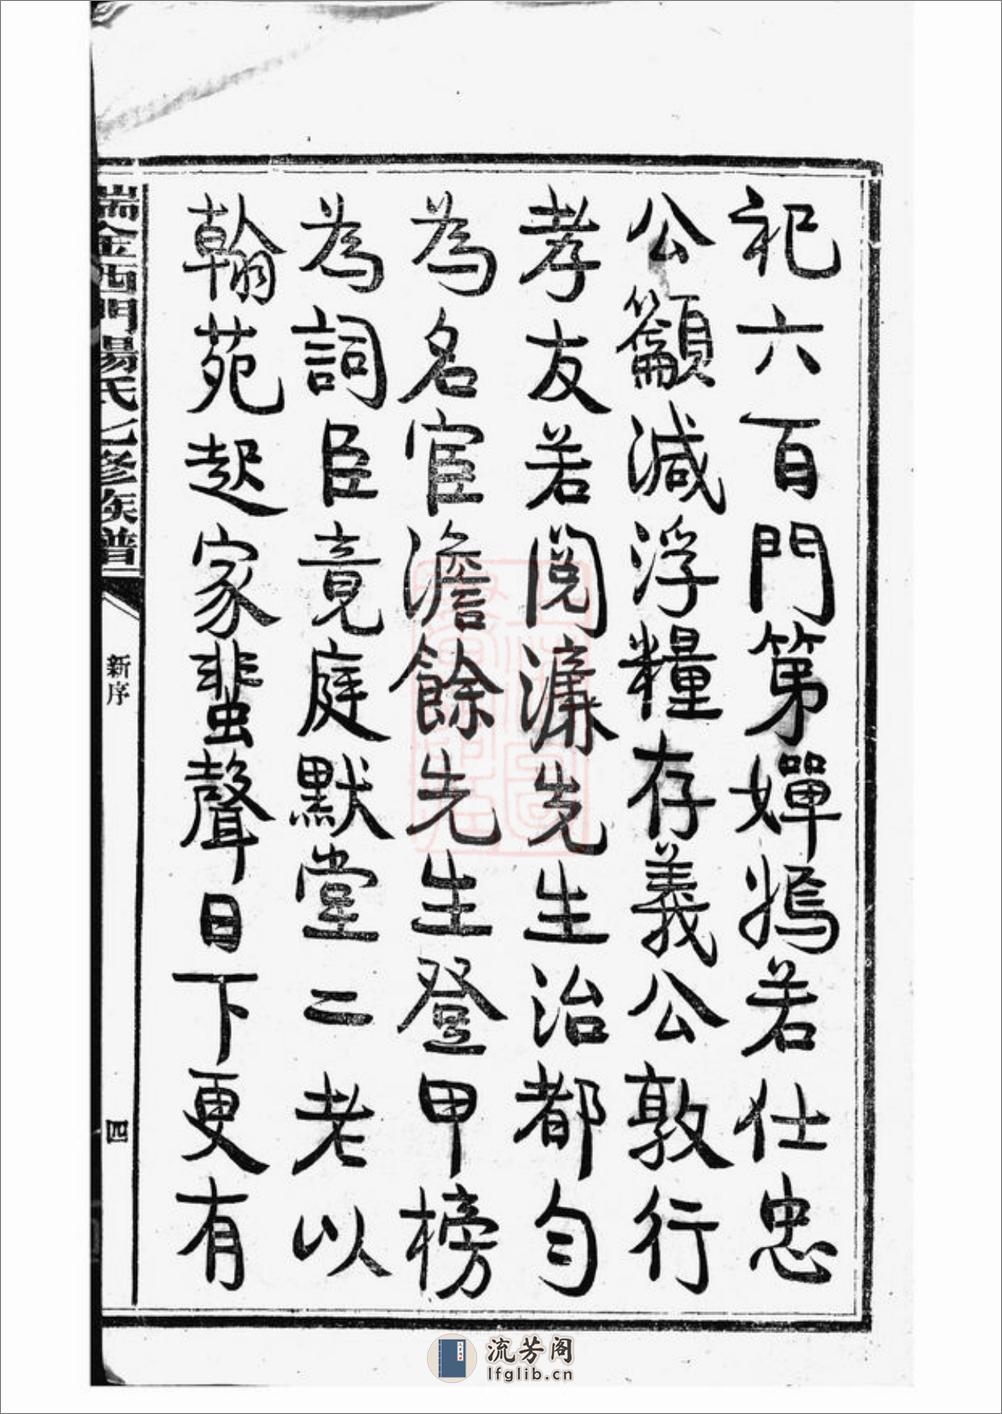 祀六百門第嬋嫣若仕忠
公籲減浮糧存義公敦行
孝友若閱濂先生治都勻
為名宦澹餘先生登甲榜
為詞臣竟庭默堂二老以
翰苑起家蜚聲日下更有
瑞金西門楊氏七修族譜
新序
四
流芳阁
lfglib.cn